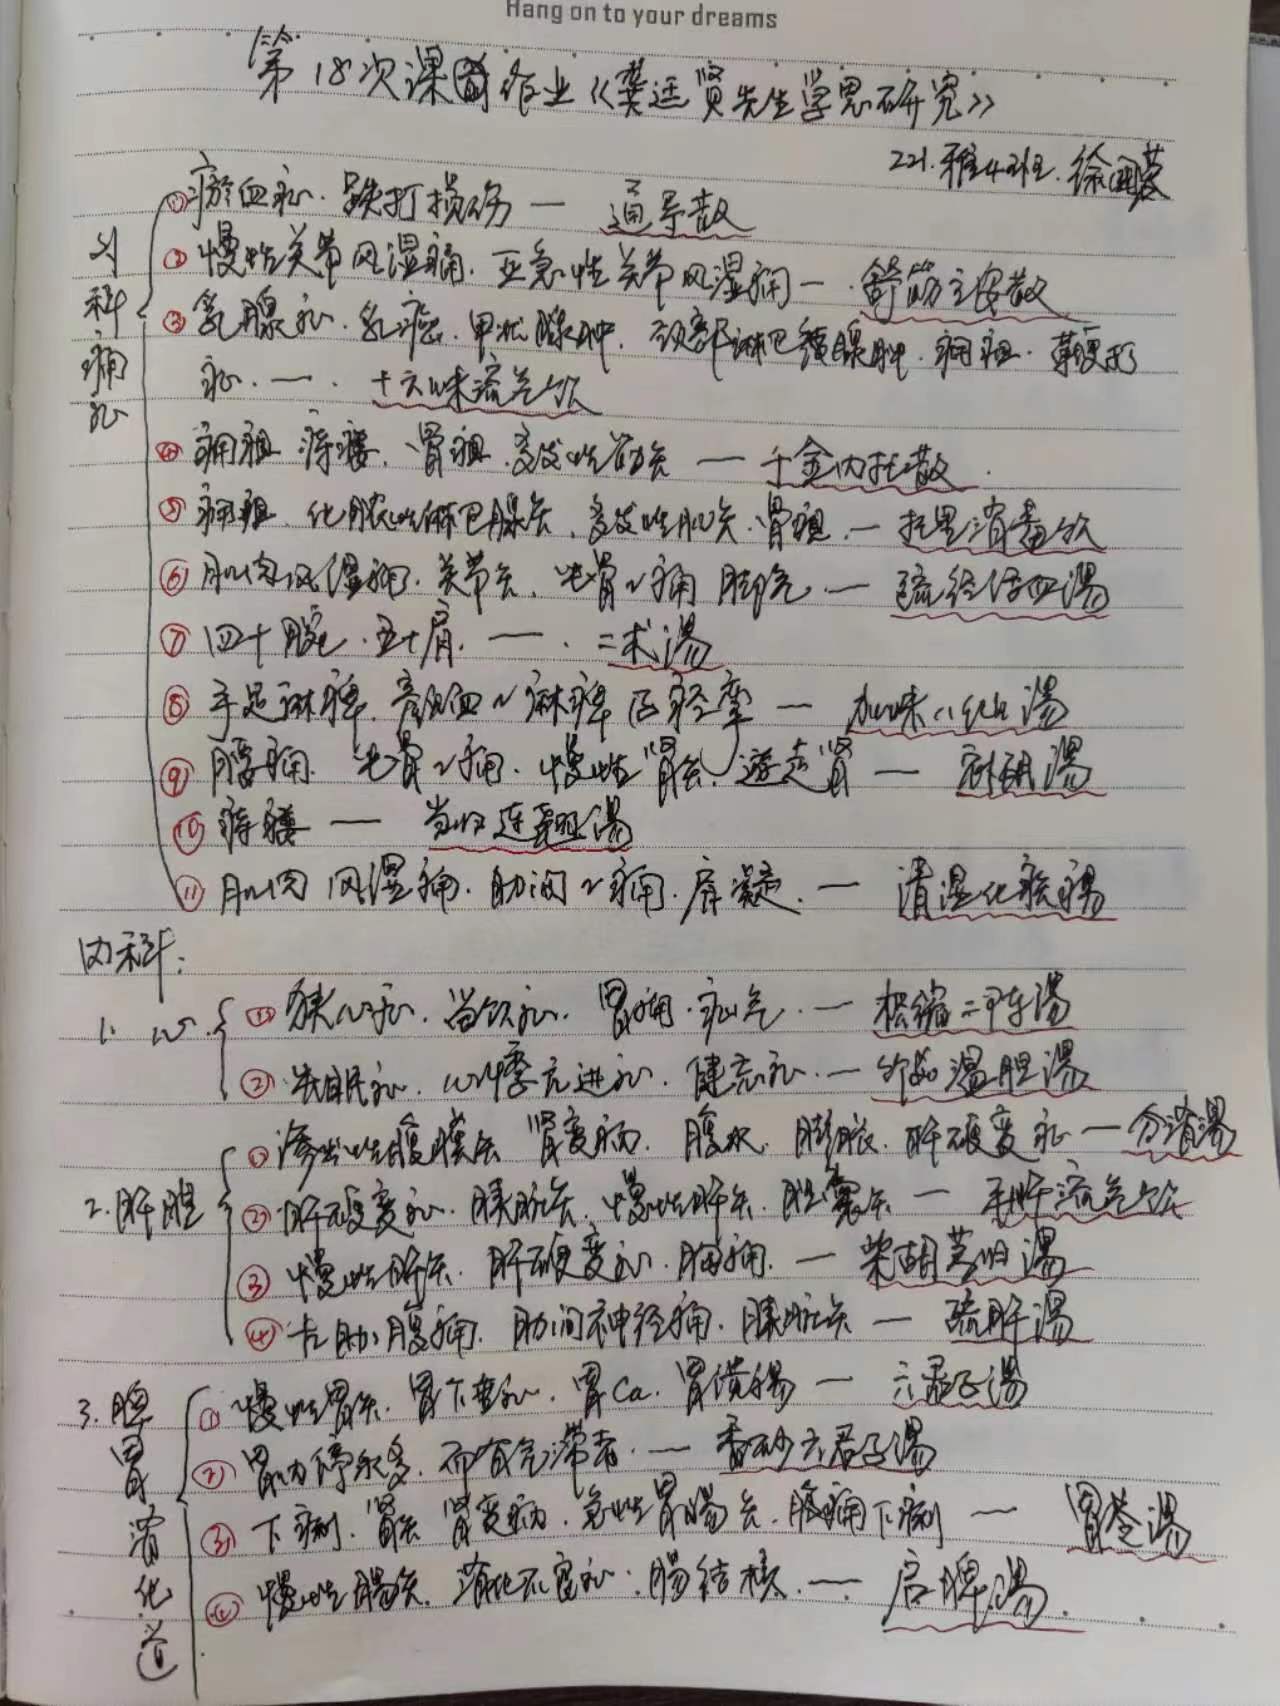 Hang on to your dreams
第18次课前作业《龚廷贤先生学思研究》
221.雅42班.徐
外科痛症
①瘀血症.跌打损伤 — 通导散
②慢性关节风湿痛.亚急性关节风湿痛 — 舒筋立安散
③乳腺症.乳癌.甲状腺肿.颈部淋巴腺肿.痈疽.
症. — . 十六味流气饮
④痈疽 痔瘘.骨疽.多发性筋炎 — 千金内托散
⑤痈疽.化脓性淋巴腺炎.多发性肌炎.骨疽. — 托里消毒饮
⑥肌肉风湿痛.关节炎.坐骨~痛 脚气 — 疏经活血湯
⑦四十腕.五十肩. — . 二术湯
⑧手足麻痺. 麻痺及痉挛 — 加味八仙湯
⑨腰痛.坐骨~痛.慢性肾炎.遊走肾 — 湯
⑩痔瘘 — 当归连翘湯
⑪肌肉风湿痛.肋间~痛.肩凝. — 清湿化痰湯
内科:
1. 心 ①狭心症.留饮症.胃痛.疝气. — 枳缩二陈湯
②失眠症.心悸亢进症.健忘症. — 竹茹温胆湯
①渗出性腹膜炎 肾变病.腹水.膨胀.肝硬变症 — 分消湯
2.肝胆 ②肝硬变症.胰脏炎.慢性肝炎.胆囊炎 — 流气饮
③慢性肝炎.肝硬变症.胸痛. — 柴胡芎归湯
④左肋腹痛.肋间神经痛.胰脏炎 — 疏肝湯
3.脾胃消化道 ①慢性胃炎.胃下垂症.胃Ca.胃溃疡 — 六君子湯
②胃内停水多.而有气滞者. — 香砂六君子湯
③下痢.肾炎 肾变病.急性胃腸炎.腹痛下痢 — 胃苓湯
④慢性腸炎.消化不良症.腸结核. — 启脾湯.